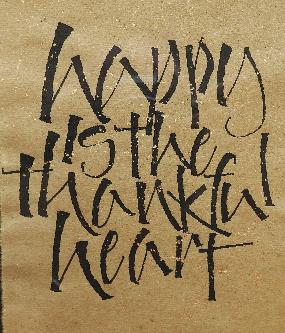 happy
is the
thankful
heart